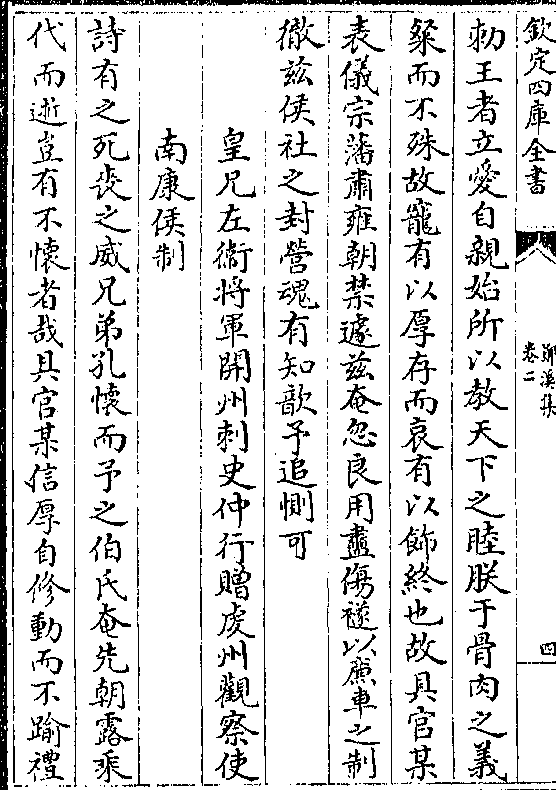 欽定四庫全書
鄖溪集
卷二
四
勑王者立愛自親始所以教天下之睦朕于骨肉之義
粲而不殊故寵有以厚存而哀有以飾終也故具官某
表儀宗藩肅雍朝禁遽兹奄忽良用衋傷禭以廉車之制
徹兹侯社之封營魂有知歆予追惻可
皇兄左衛將軍開州刺史仲行贈䖍州觀察使
南康侯制
詩有之死丧之威兄弟孔懷而予之伯氏奄先朝露乘
代而逝豈有不懷者哉具官某信厚自修動而不踰禮